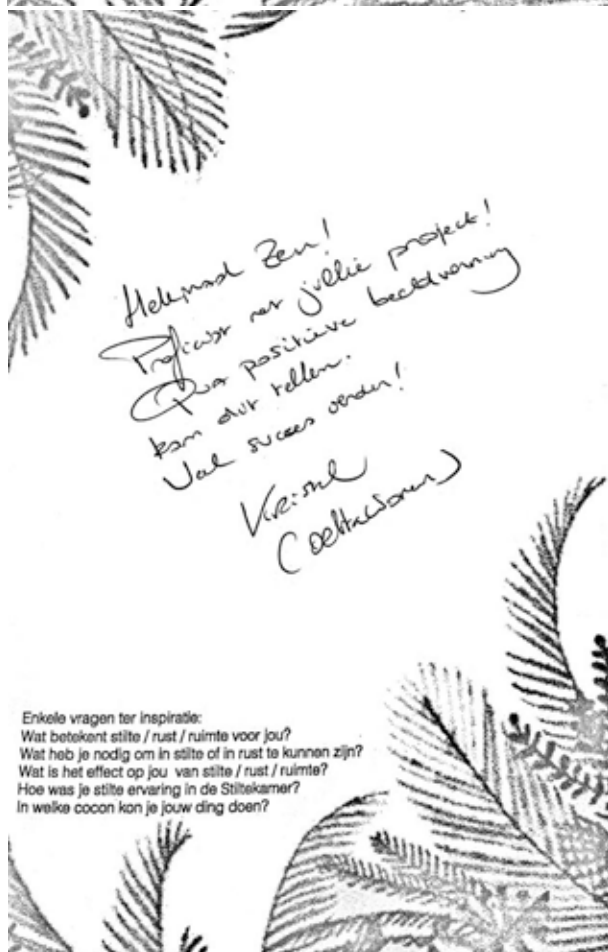 Helemaal Zen!
Proficiat met jullie project!
Qua positieve beeldvorming
kan dit tellen.
Veel succes verder!
Kristel
Enkele vragen ter inspiratie:
Wat betekent stilte / rust / ruimte voor jou?
Wat heb je nodig om in stilte of in rust te kunnen zijn?
Wat is het effect op jou van stilte / rust / ruimte?
Hoe was je stilte ervaring in de Stiltekamer?
In welke cocon kon je jouw ding doen?